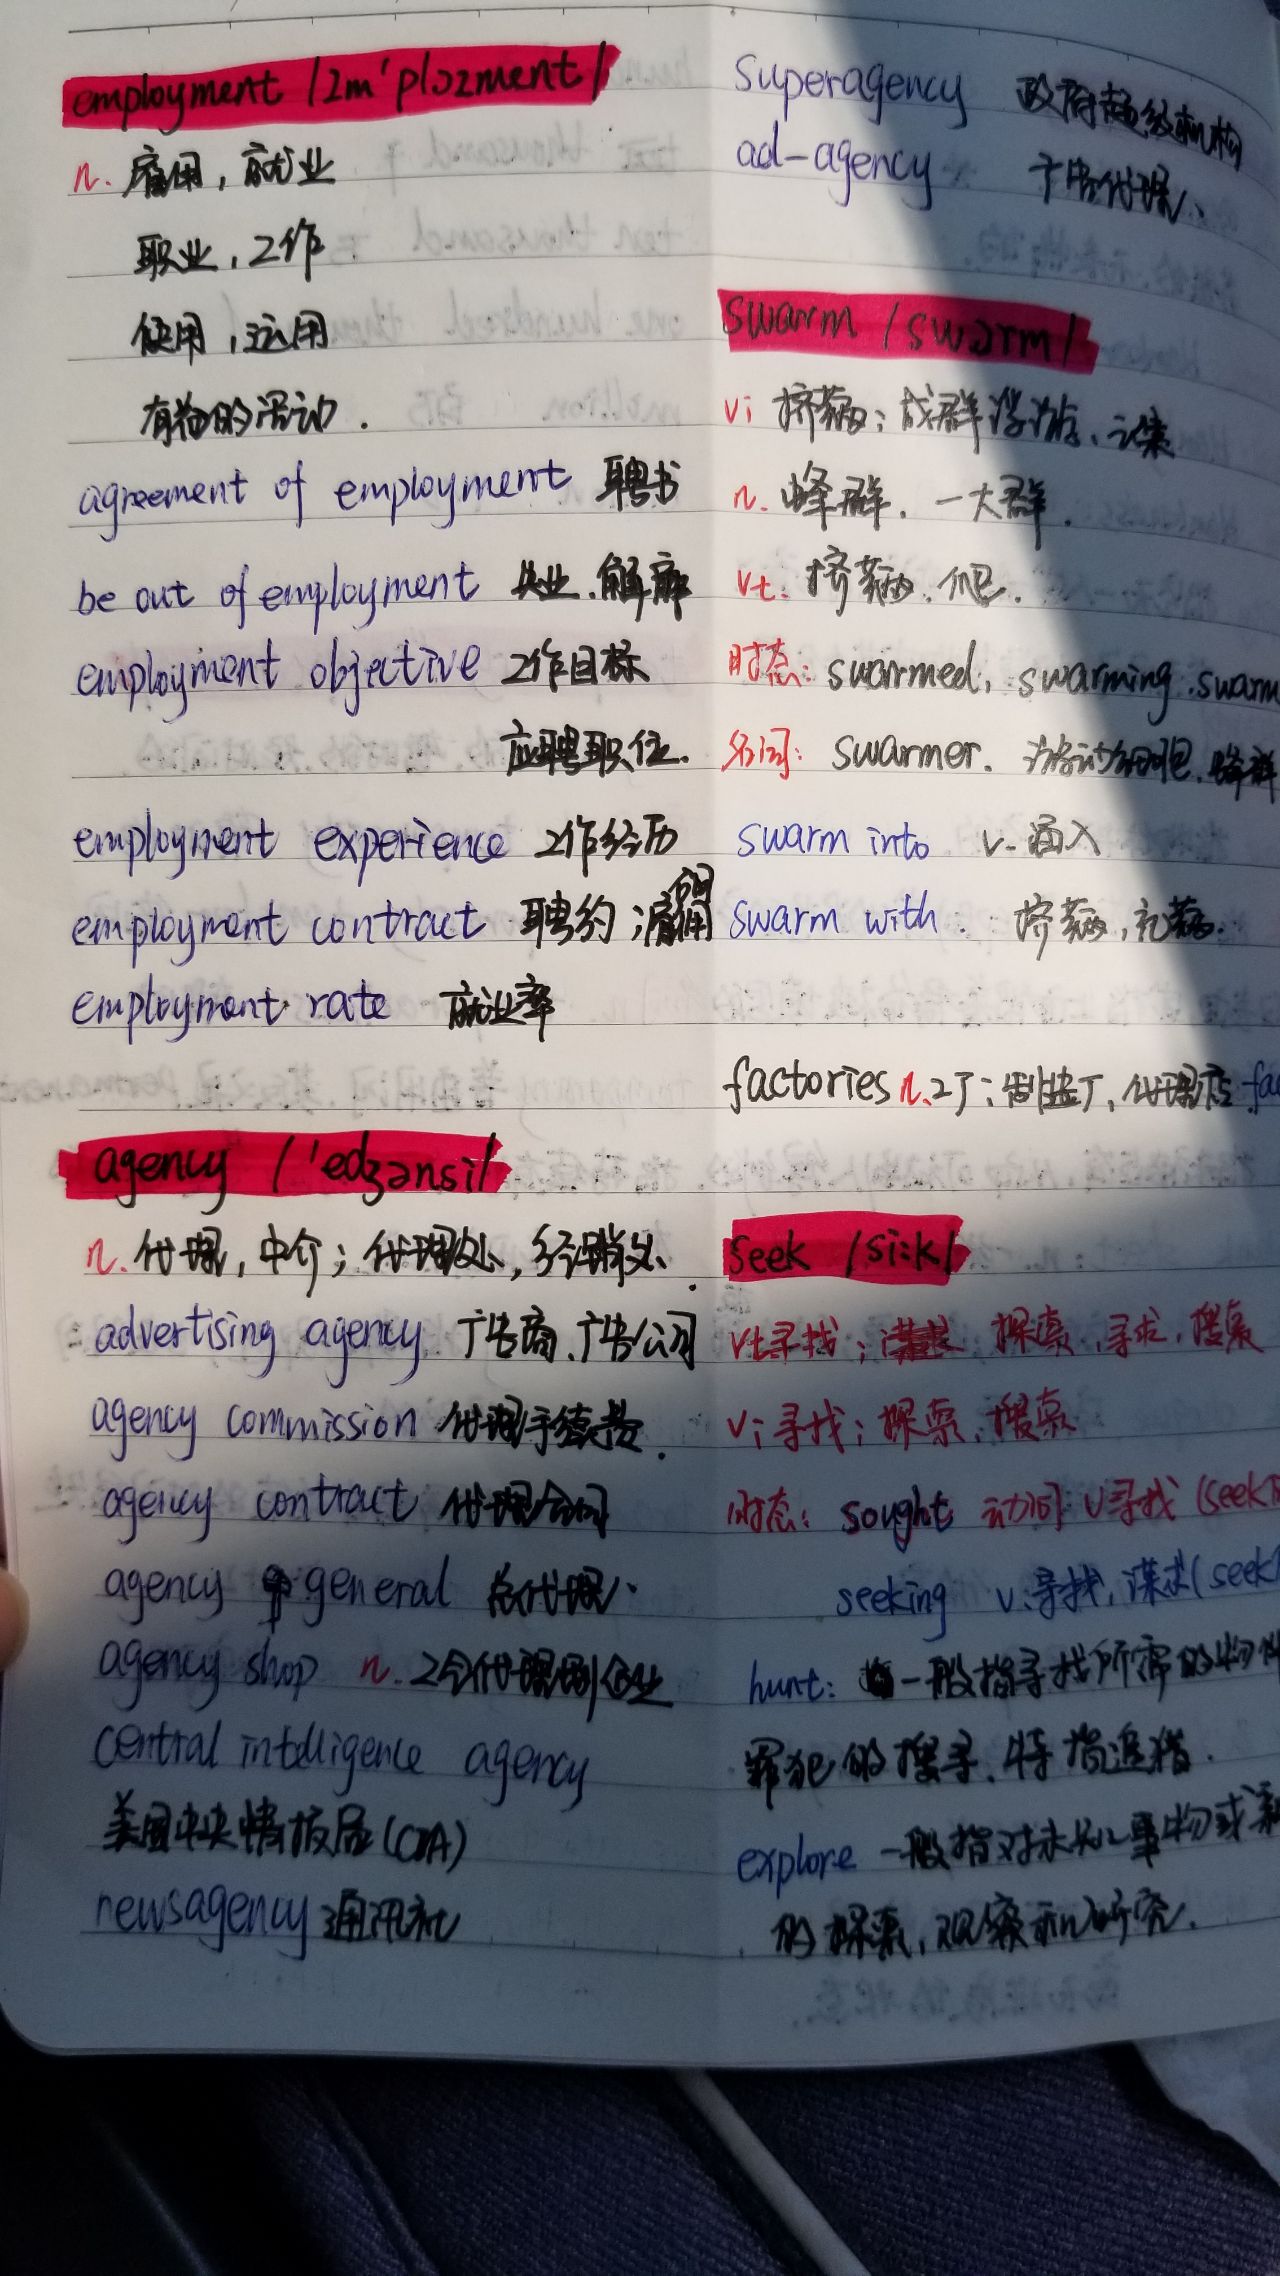 employment /ɪm'plɔɪment/
n. 雇佣，就业
职业，工作
使用，运用
有益的活动.
agreement of employment 聘书
be out of employment 失业.解雇
employment objective 工作目标
应聘职位.
employment experience 工作经历
employment contract 聘约;雇佣合同
employment rate 就业率
agency /'edʒənsi/
n. 代理，中介；代理处，经销处.
advertising agency 广告商.广告公司
agency commission 代理手续费.
agency contract 代理合同
agency general 总代理.
agency shop n. 工会代理制企业
central intelligence agency
美国中央情报局(CIA)
newsagency 通讯社
superagency 政府超级机构
ad-agency 广告代理.
swarm /swɔrm/
vi 挤满；成群浮游、云集
n. 蜂群. 一大群.
vt. 挤满. 爬.
时态: swarmed, swarming.swarm
名词: swarmer. 游动细胞.蜂群
swarm into v. 涌入
swarm with. 挤满,充满.
factories n.工厂;制造厂,代理店.fac
seek /si:k/
vt寻找； 探索,寻求,搜索
vi寻找；探索,搜索
时态: sought 动词 v寻找(seek
seeking v.寻找,谋求(seek
hunt: 一般指寻找所需的物件
罪犯的搜寻.特指追猎.
explore 一般指对未知事物或
的探索,观察和研究.